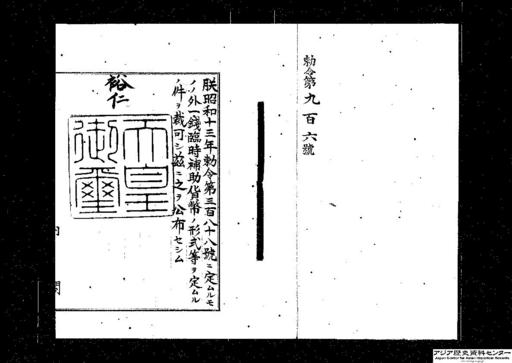 勅令第九百六號
朕昭和十三年勅令第三百八十八號ニ定ムルモ
ノノ外一錢臨時補助貨幣ノ形式等ヲ定ムル
ノ件ヲ裁可シ茲ニ之ヲ公布セシム
裕仁
天皇
御璽
内閣
アジア歴史資料センター
Japan Center for Asian Historical Records